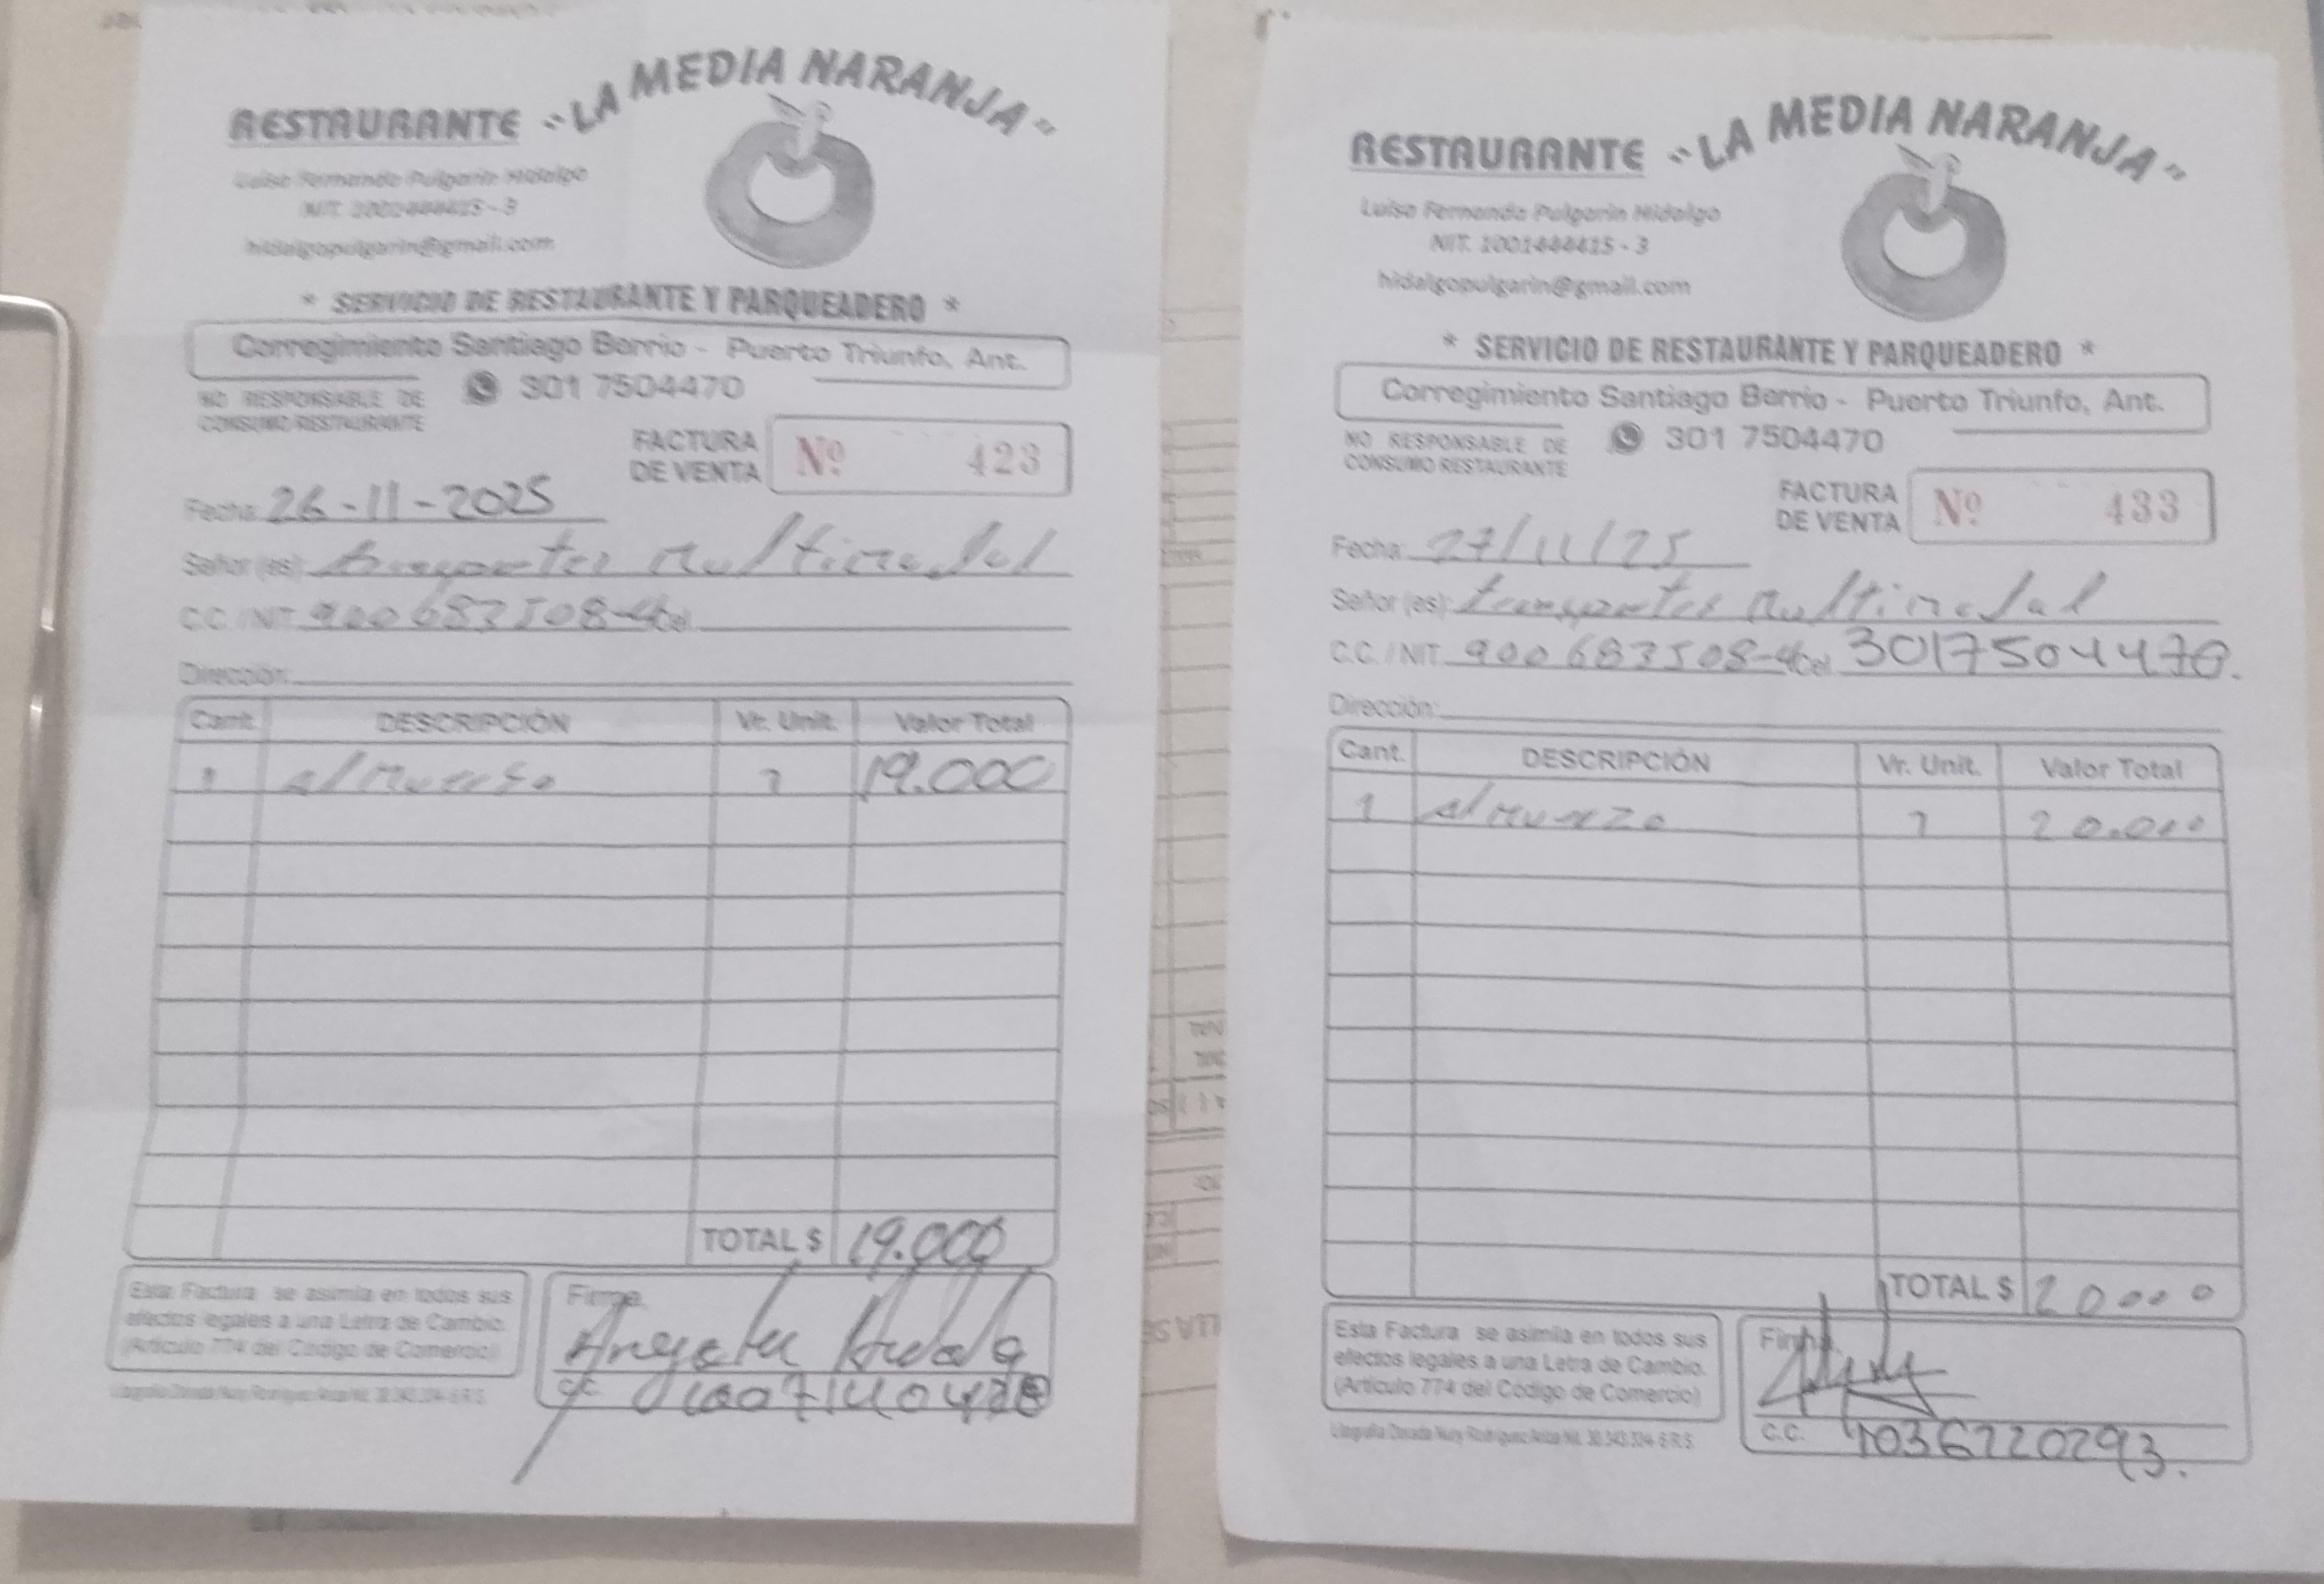 RESTAURANTE "LA MEDIA NARANJA"
Luisa Fernanda Pulgarin Hidalgo
NIT. 1001444415 - 3
hidalgopulgarin@gmail.com
* SERVICIO DE RESTAURANTE Y PARQUEADERO *
Corregimiento Santiago Berrio - Puerto Triunfo, Ant.
NO RESPONSABLE DE
CONSUMO RESTAURANTE
301 7504470
FACTURA
DE VENTA Nº 423
Fecha: 26-11-2025
Señor (es): transportes Multimodal
C.C. / NIT. 900683508-4 Cel.
Dirección:
Cant. DESCRIPCIÓN Vr. Unit. Valor Total
1 almuerzo 1 19.000
TOTAL $ 19.000
Esta Factura se asimila en todos sus
efectos legales a una Letra de Cambio.
(Artículo 774 del Código de Comercio)
Firma.
C.C.
RESTAURANTE "LA MEDIA NARANJA"
Luisa Fernanda Pulgarin Hidalgo
NIT. 1001444415 - 3
hidalgopulgarin@gmail.com
* SERVICIO DE RESTAURANTE Y PARQUEADERO *
Corregimiento Santiago Berrio - Puerto Triunfo, Ant.
NO RESPONSABLE DE
CONSUMO RESTAURANTE
301 7504470
FACTURA
DE VENTA Nº 433
Fecha: 27/11/25
Señor (es): transportes Multimodal
C.C. / NIT. 900683508-4 Cel. 3017504470.
Dirección:
Cant. DESCRIPCIÓN Vr. Unit. Valor Total
1 almuerzo 1 20.000
TOTAL $ 20000
Esta Factura se asimila en todos sus
efectos legales a una Letra de Cambio.
(Artículo 774 del Código de Comercio)
Firma.
C.C.